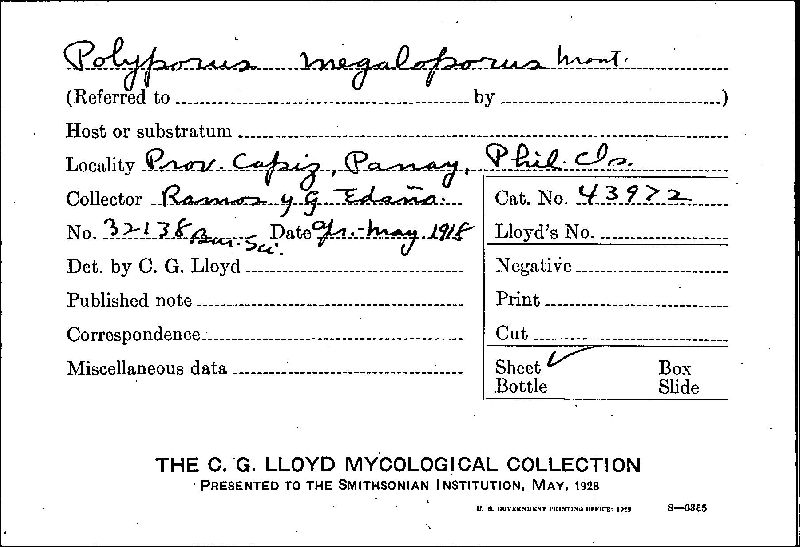 Polyporus megaloporus Mont.
(Referred to by )
Host or substratum
Locality Prov. Capiz, Panay, Phil. Is.
Collector Ramos y G Edaño. Cat. No. 43972
No. 32138 Bur. Sci. Date Apr.-May, 1918 Lloyd's No.
Det. by C. G. Lloyd Negative
Published note Print
Correspondence Cut
Miscellaneous data Sheet ✓ Box
Bottle Slide
THE C. G. LLOYD MYCOLOGICAL COLLECTION
PRESENTED TO THE SMITHSONIAN INSTITUTION, MAY, 1928
U. S. GOVERNMENT PRINTING OFFICE: 1929